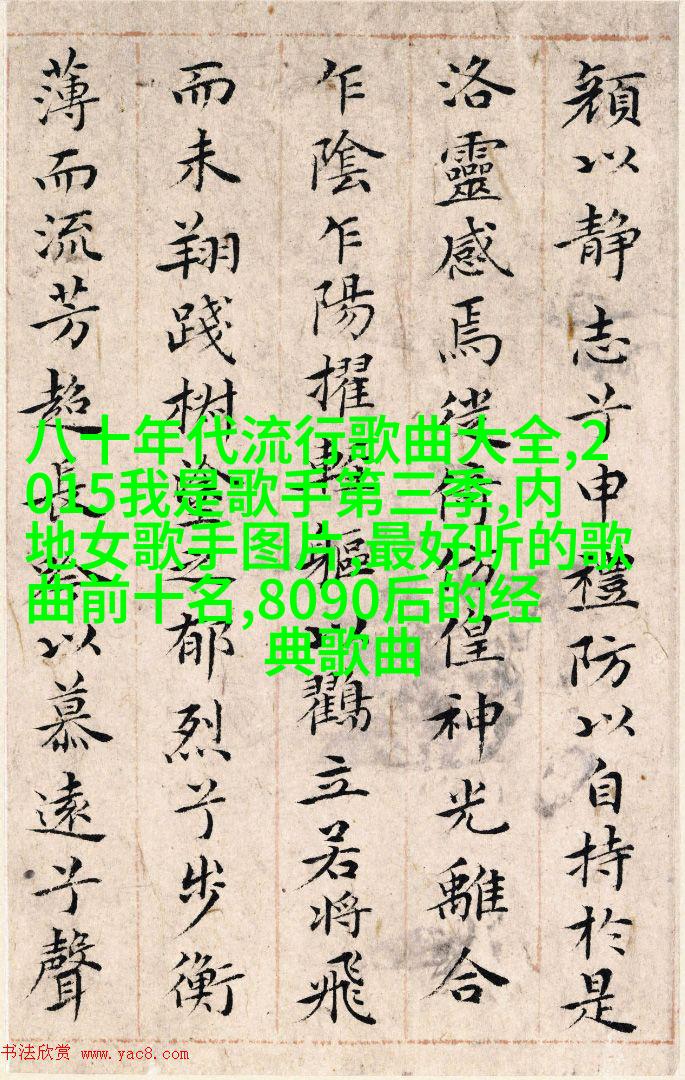 顏以静志兮申禮防以自持於是
洛靈感焉徙倚仿偟神光離合
乍陰乍陽擢輕軀以鶴立若將飛
而未翔踐椒塗之郁烈兮步衡
薄而流芳超長吟以慕遠兮聲
八十年代流行歌曲大全,2
015我是歌手第三季,内
地女歌手图片,最好听的歌
曲前十名,8090后的经
典歌曲
书法欣赏 www.yac8.com